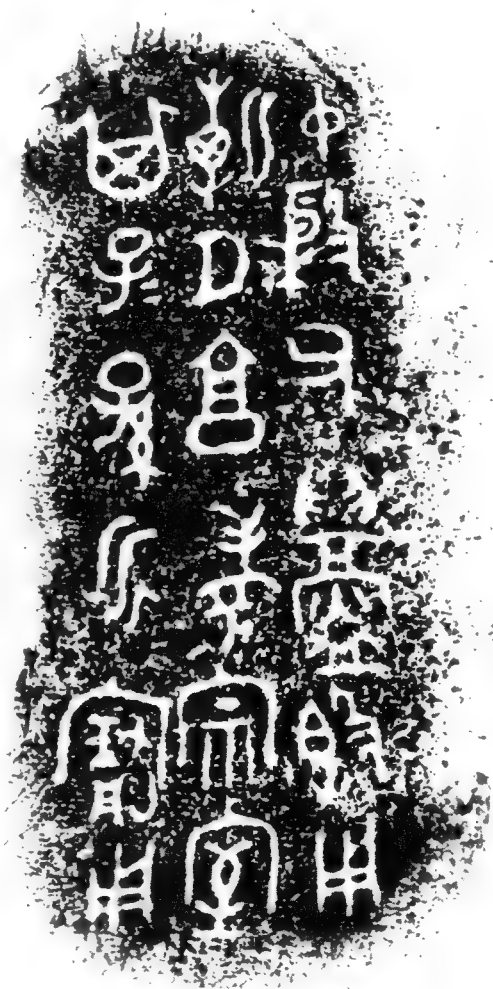 中殷父鑄𣪘用
朝夕亯孝宗室
其子孫永寶用